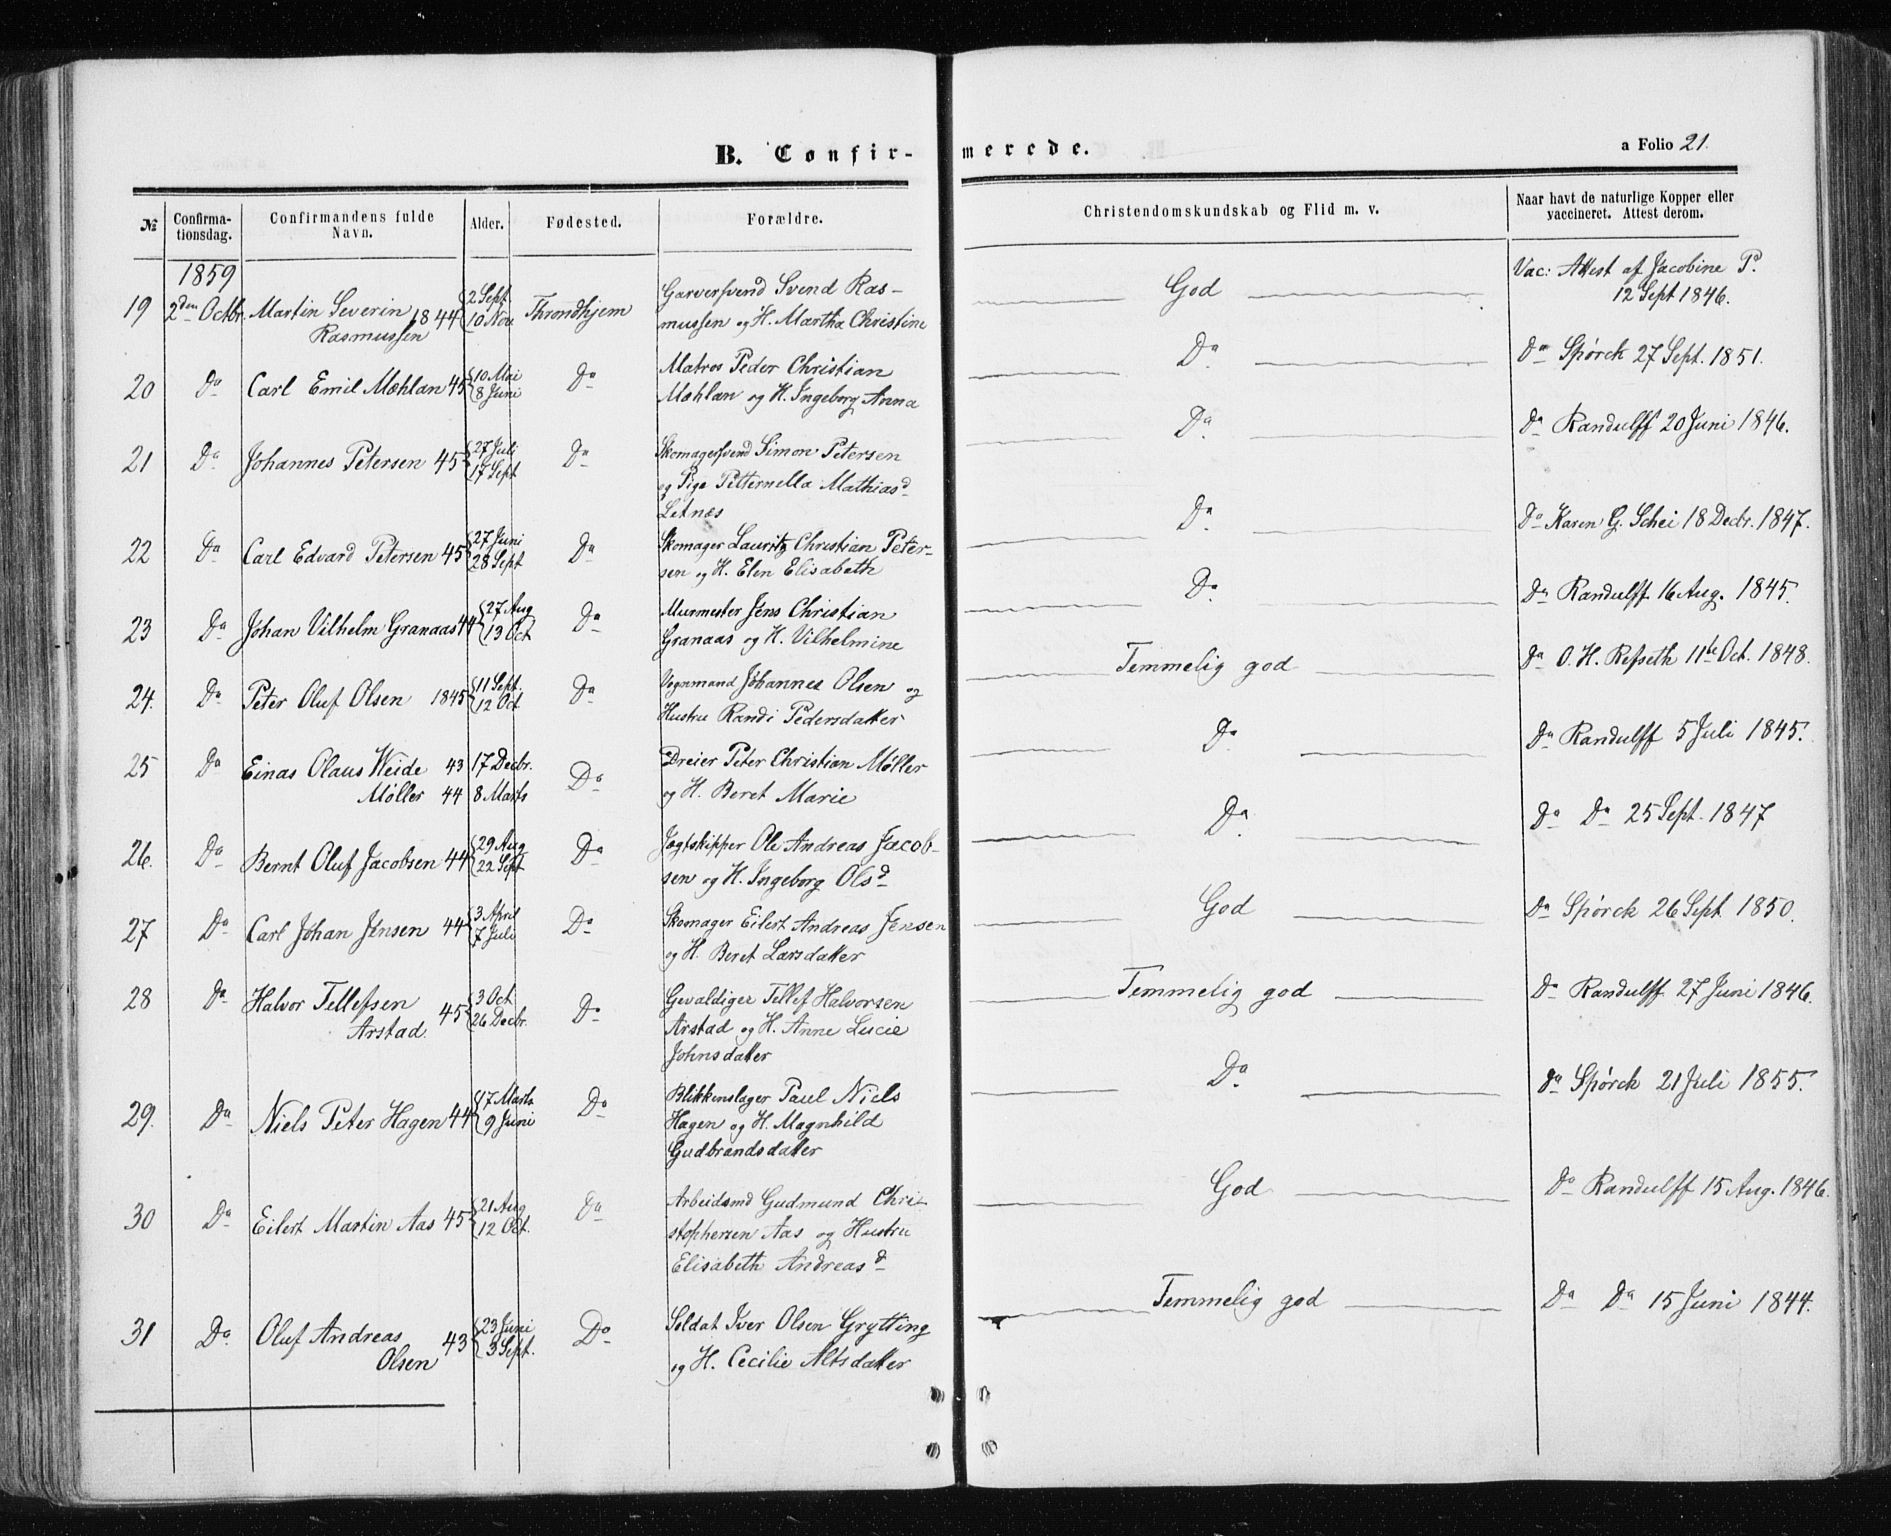 B. Confir-
merede.
a Folio 21.
№ Confirma-tionsdag. Confirmandens fulde Navn. Alder. Fødested. Forældre. Christendomskundskab og Flid m. v. Naar havt de naturlige Kopper eller vaccineret. Attest derom.
1859
19 2den Octbr. Martin Severin 1844 2 Sept Throndhjem Garversvend Svend Ras- God Vac: Attest af Jacobine P.
Rasmussen 10 Nov mussen og H. Martha Christine 12 Sept 1846.
20 Do Carl Emil Mæhlan 45 10 Mai Do Matros Peder Christian Do Do Spørck 27 Sept. 1851.
8 Juni Mæhlan og H. Ingeborg Anna
21 Do Johannes Petersen 45 27 Juli Do Skomagersvend Simon Petersen Do Do Randulff 20 Juni 1846.
17 Sept og Pige Petternella Mathiasd
Letnæs
22 Do Carl Edvard Petersen 45 27 Juni Do Skomager Lauritz Christian Peter- Do Do Karen G. Schei 18 Decbr. 1847.
28 Sept sen og H. Elen Elisabeth
23 Do Johan Vilhelm Granaas 44 27 Aug Do Murmester Jens Christian Do Do Randulff 16 Aug. 1845.
13 Oct Granaas og H. Vilhelmine
24. Do Peter Oluf Olsen 1845 11 Sept. Do Vognmand Johannes Olsen og Temmelig god Do O. H. Refseth 11te Oct. 1848.
12 Oct Hustru Randi Pedersdatter
25 Do Einas Olaus Weide 43 17 Decbr. Do Dreier Peter Christian Møller Do Do Randulff 5 Juli 1845.
Møller 44 8 Marts og H. Beret Marie
26. Do Bernt Oluf Jacobsen 44 29 Aug Do Jagtskipper Ole Andreas Jacob- Do Do Do 25 Sept. 1847
22 Sept sen og H. Ingeborg Olsd
27 Do Carl Johan Jensen 44 3 April Do Skomager Eilert Andreas Jensen God Do Spørck 26 Sept 1850.
7 Juli og H. Beret Larsdatter
28 Do Halvor Tellefsen 45 3 Oct Do Gevaldiger Tellef Halvorsen Temmelig god Do Randulff 27 Juni 1846.
Arstad. 26 Decbr. Arstad og H. Anne Lucie
Johnsdatter
29. Do Niels Peter Hagen 44 17 Marts Do Blikkenslager Paul Niels Do Do Spørck 21 Juli 1855.
9 Juni Hagen og H. Magnhild
Gudbrandsdatter
30 Do Eilert Martin Aas 45 21 Aug Do Arbeidsmd Gudmund Chri- God Do Randulff 15 Aug. 1846.
12 Oct. stophersen Aas og Hustru
Elisabeth Andreasd
31 Do Oluf Andreas 43 23 Juni Do Soldat Iver Olsen Grytting Temmelig god Do Do 15 Juni 1844.
Olsen 3 Sept. og H. Cecilie Altsdatter